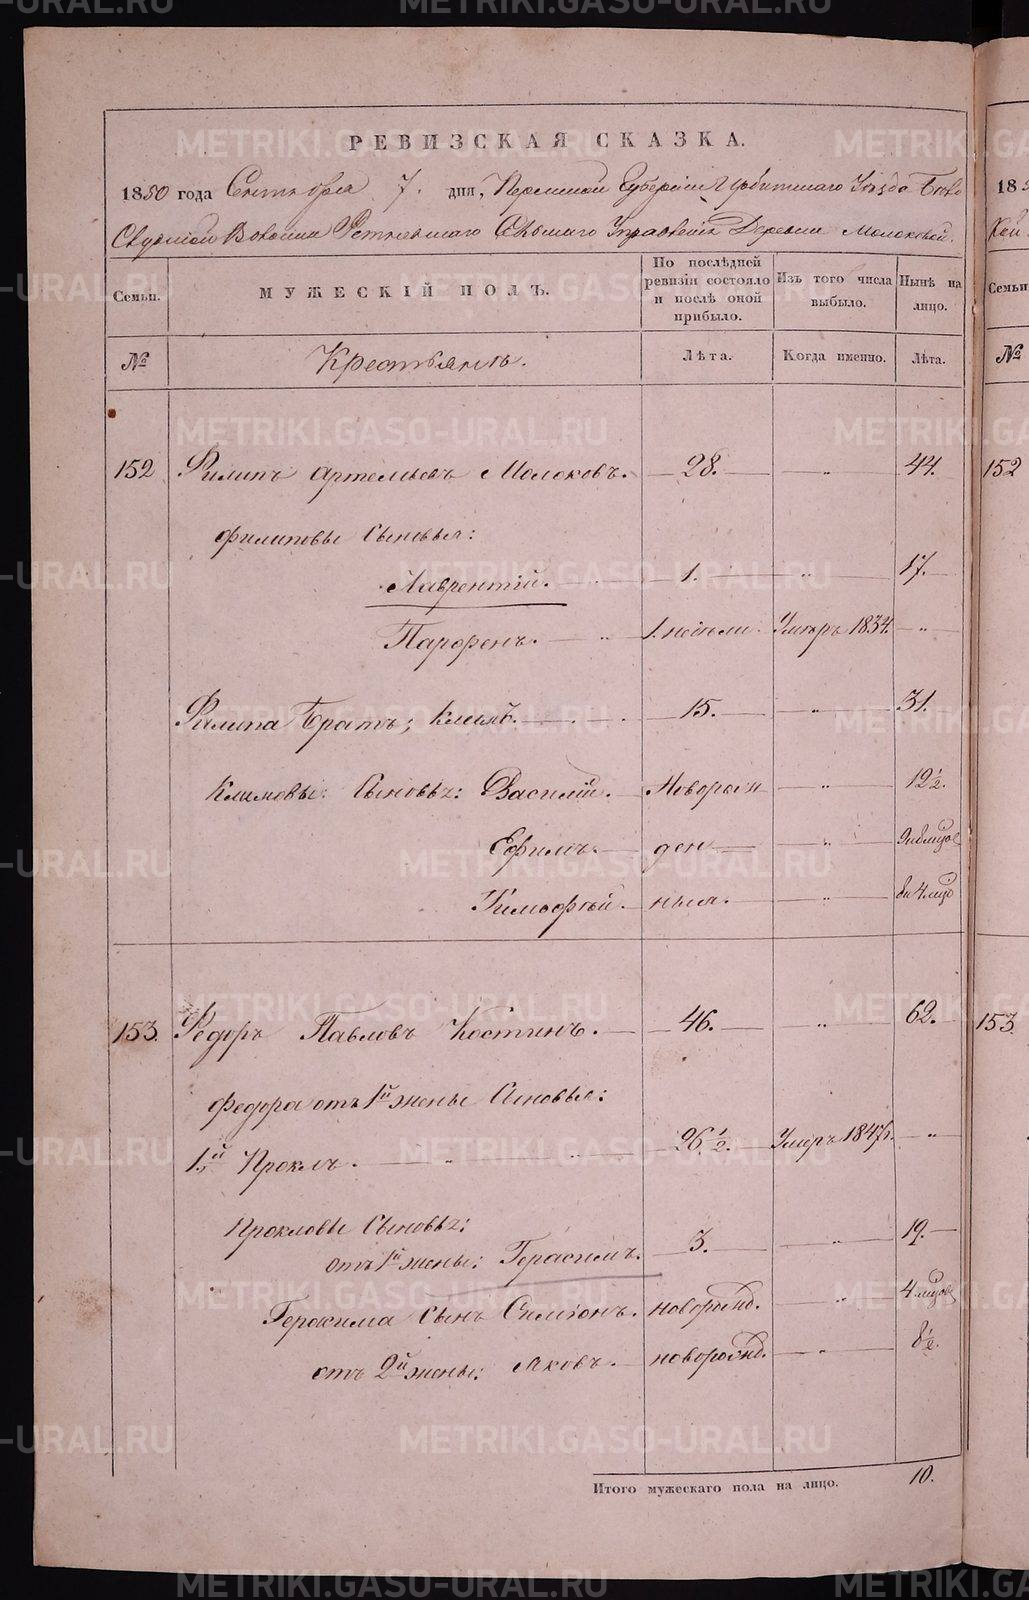 METRIKI.GASO-URAL.RU
РЕВИЗСКАЯ СКАЗКА.
1850 года Сентября 7. дня, Пермской Губерніи Ирбитскаго Уѣзда
Волости Сельскаго Управленія Деревни Молоковой.
Семьи. МУЖЕСКІЙ ПОЛЪ. По послѣдней ревизіи состояло и послѣ оной прибыло. Изъ того числа выбыло. Нынѣ на лицо.
№ Крестьянъ. Лѣта. Когда именно. Лѣта.
152 Филипъ Артемьевъ Молоковъ. 28. " 44.
Филиповы Сыновья:
Лаврентій. " 1. " 17.
Парфенъ. " 1. недѣли. Умеръ 1834. "
Филипа Братъ; Климъ. 15. " 31.
Климовы: Сыновья: Василій. Новорож " 12 1/2.
Ефимъ. ден "
Тимофѣй. ныя. "
153. Федоръ Павловъ Костинъ. 46. " 62.
Федора отъ 1й жены Сыновья:
1й Проклъ. " " 26 1/2. Умеръ 1847. "
Прокловы Сыновья:
отъ 1й жены: Герасимъ. 3. " 19.
Герасима Сынъ Симіонъ. новорожд. "
отъ 2й жены: Яковъ. новорожд. " 8 1/2.
Итого мужескаго пола на лицо. 10.
185
Семьи
№
152
153